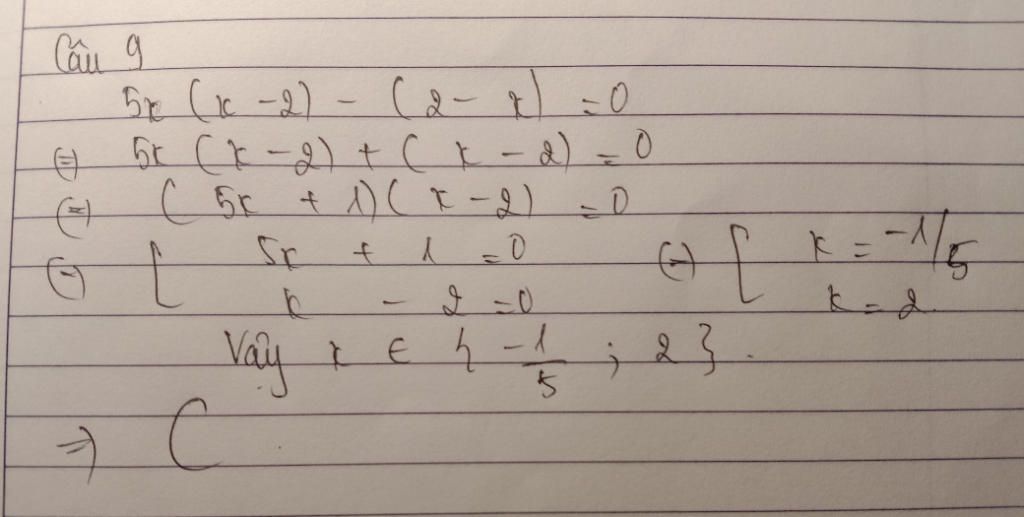 Câu 9
5x (x - 2) - (2 - x) = 0
(=) 5x (x - 2) + (x - 2) = 0
(=) (5x + 1)(x - 2) = 0
(=) [ 5x + 1 = 0 (=) [ x = -1/5
x - 2 = 0 x = 2
Vậy x ∈ { -1/5 ; 2 }.
=> C